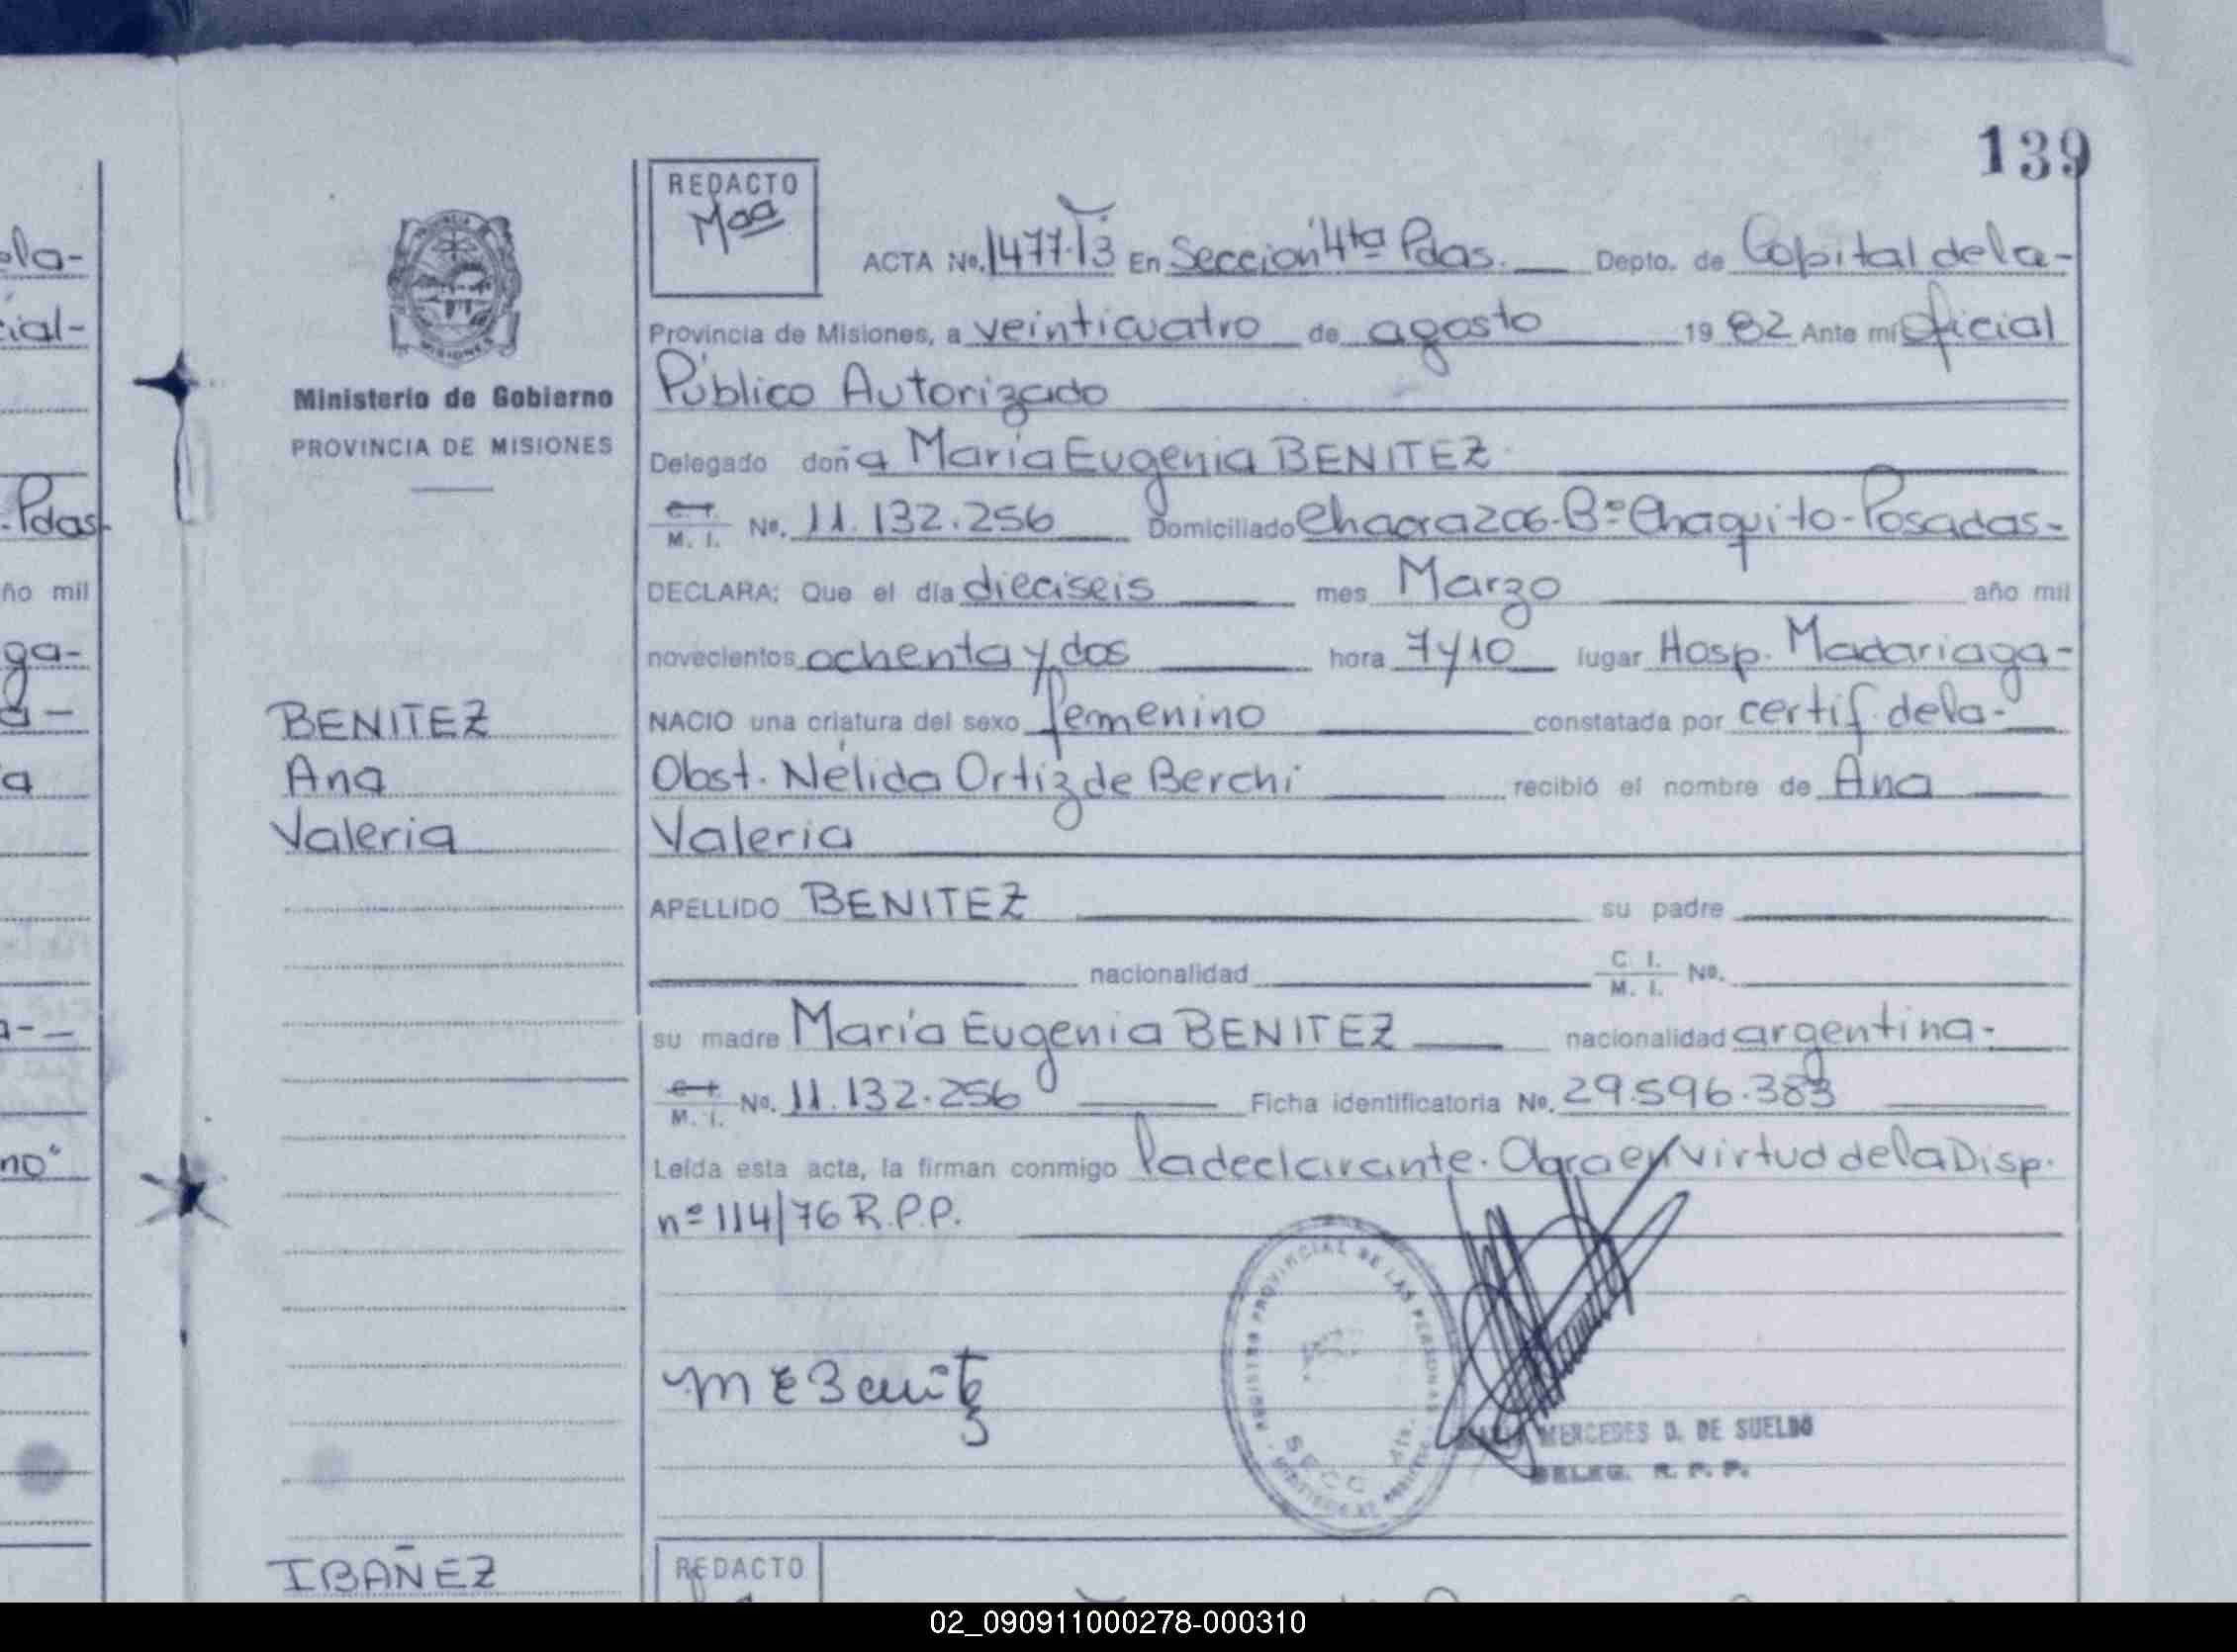 139
REDACTO
Maa
ACTA No. 1477-T3 En Sección 4ta Pdas. Depto. de Capital de la-
Provincia de Misiones, a veinticuatro de agosto 19 82 Ante mí Oficial
Público Autorizado
Delegado doña María Eugenia BENITEZ
M. I. No. 11.132.256 Domiciliado Chacra 206-Bº Chaquito-Posadas-
DECLARA: Que el día dieciseis mes Marzo año mil
novecientos ochenta y dos hora 7 y 10 lugar Hosp. Madariaga-
NACIO una criatura del sexo femenino constatada por certif. de la-
Obst. Nélida Ortiz de Berchi recibió el nombre de Ana
Valeria
APELLIDO BENITEZ su padre
nacionalidad C. I. M. I. No.
su madre María Eugenia BENITEZ nacionalidad argentina-
M. I. No. 11.132.256 Ficha identificatoria No. 29.596.383
Leída esta acta, la firman conmigo la declarante. en virtud de la Disp.
nº 114/76 R.P.P.
M E Benitez
REGISTRO PROVINCIAL DE LAS PERSONAS
SECC 4ta.
MERCEDES D. DE SUELDO
DELEG. R. P. P.
PROVINCIA
MISIONES
Ministerio de Gobierno
PROVINCIA DE MISIONES
BENITEZ
Ana
Valeria
IBAÑEZ
REDACTO
ela-
cial-
Pdas-
ño mil
ga-
a-
a
a-
no"
02_090911000278-000310